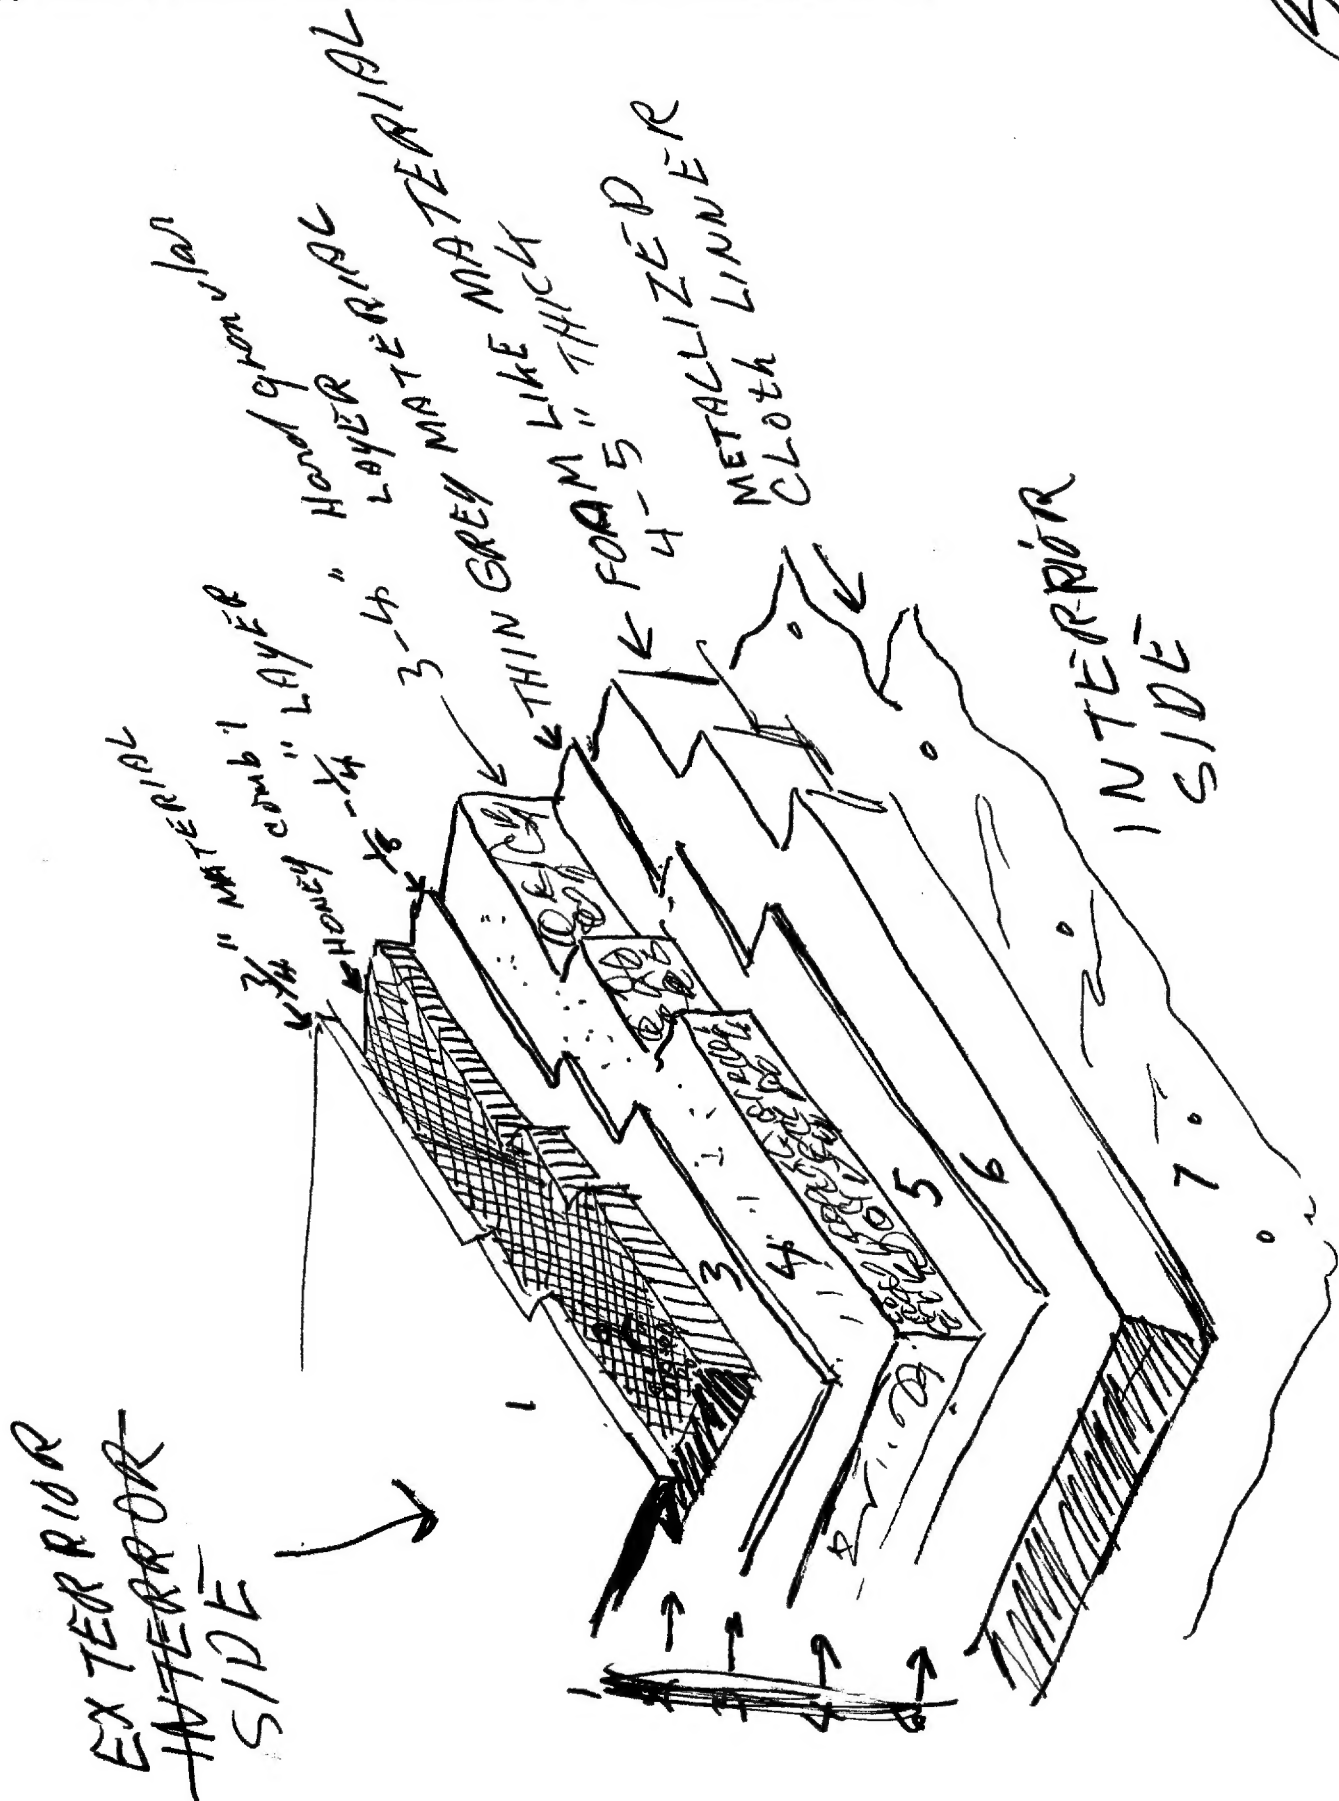 EXTERRIOR
INTERROR
SIDE
3/4" MATERIAL
HONEY comb 1
" LAYER
1/8 - 1/4 " Hard granular
LAYER
3-4 " LAYER MATERIAL
THIN GREY MATERIAL
FOAM LIKE MATERIAL
4-5" THICK
METALLIZED
CLOTH LINNER
INTERRIOR
SIDE
1
3
4
5
6
7
1